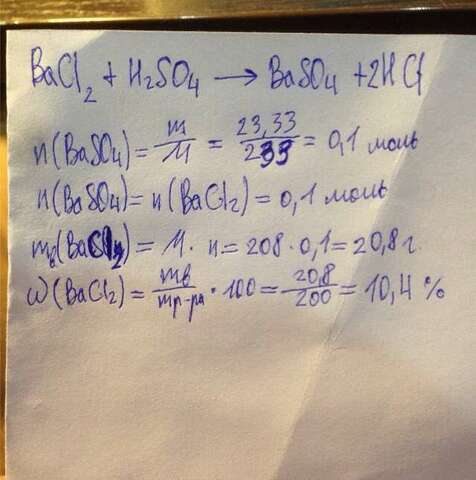 BaCl₂ + H₂SO₄ → BaSO₄ + 2HCl
n(BaSO₄) = m/M = 23,33/233 = 0,1 моль
n(BaSO₄) = n(BaCl₂) = 0,1 моль
mв(BaCl₂) = M · n = 208 · 0,1 = 20,8 г.
ω(BaCl₂) = mв/mр-ра · 100 = 20,8/200 = 10,4 %